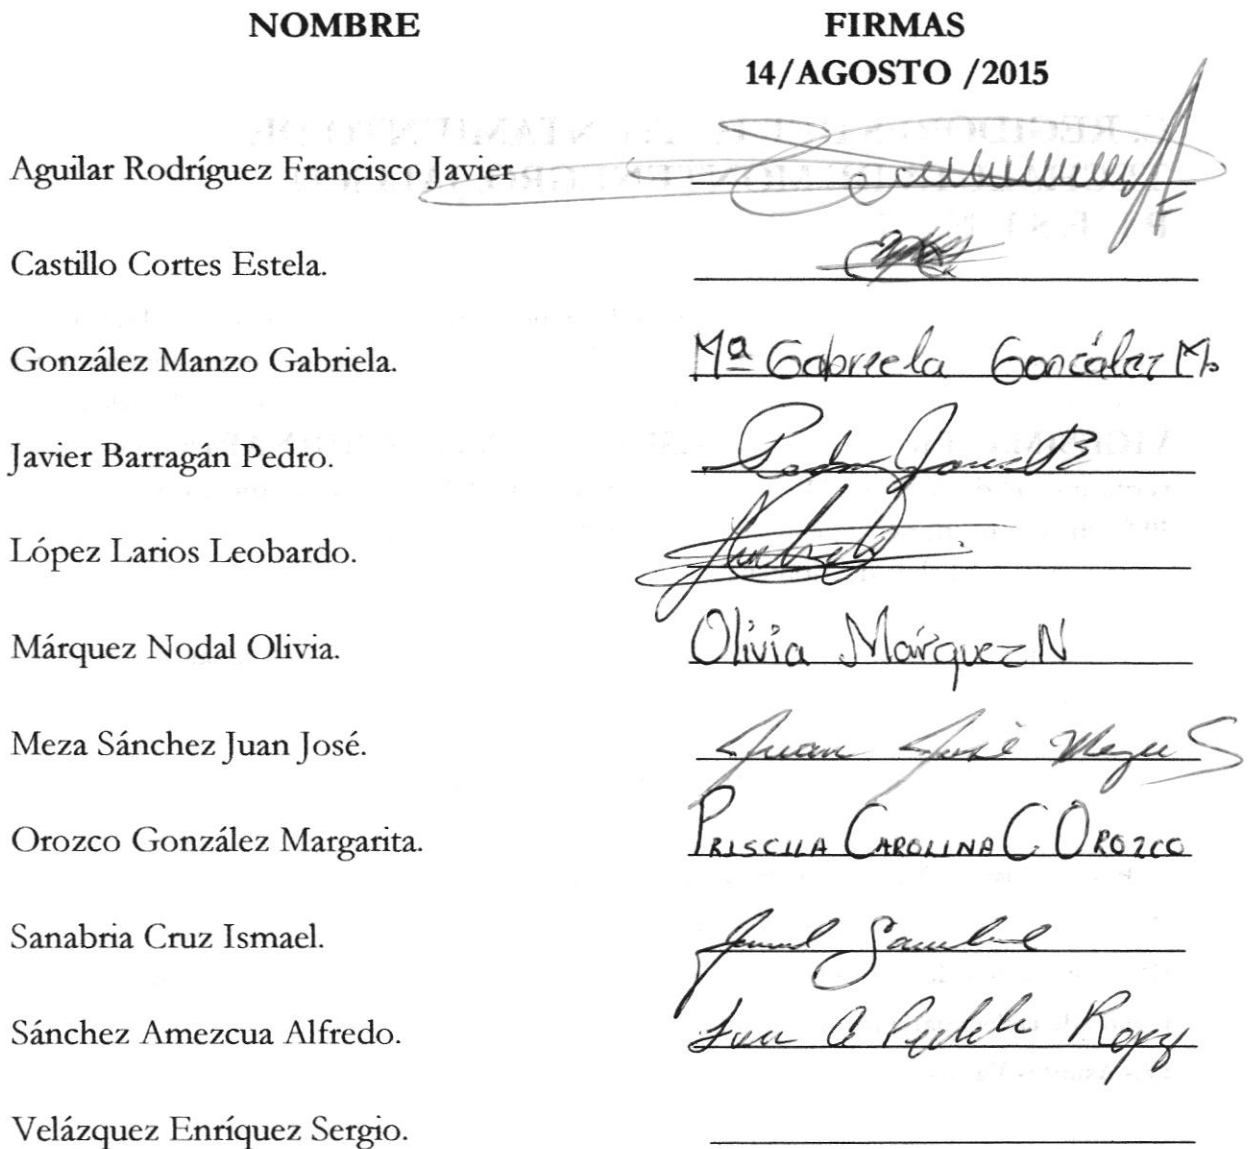 NOMBRE FIRMAS
14/AGOSTO /2015
Aguilar Rodríguez Francisco Javier
Castillo Cortes Estela.
González Manzo Gabriela. Mª Gabriela González M.
Javier Barragán Pedro. Pedro Javier B
López Larios Leobardo.
Márquez Nodal Olivia. Olivia Márquez N
Meza Sánchez Juan José. Juan José Meza S
Orozco González Margarita. PRISCILA CAROLINA C OROZCO
Sanabria Cruz Ismael.
Sánchez Amezcua Alfredo.
Velázquez Enríquez Sergio.